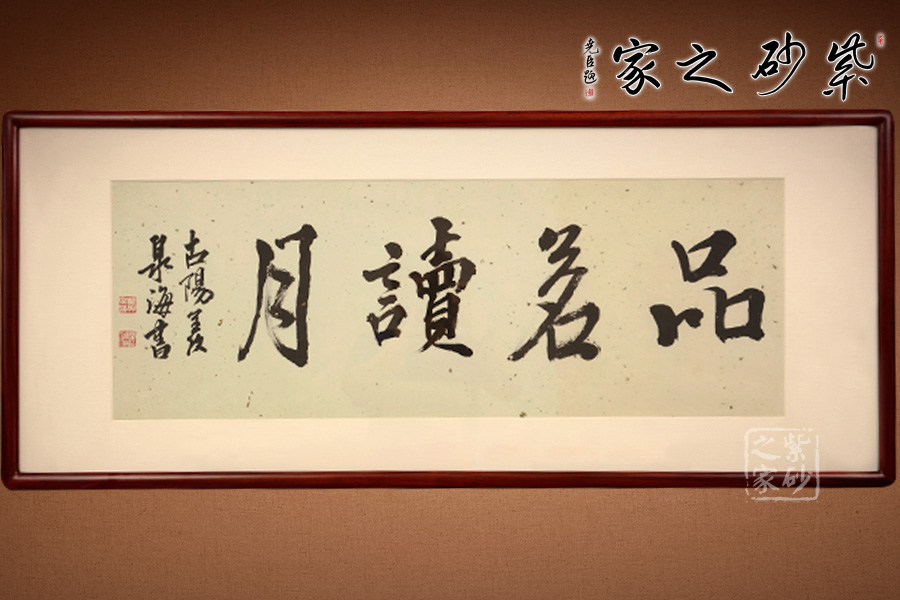 紫砂之家
品茗讀月
古陽羨
泉海書
紫砂
之家